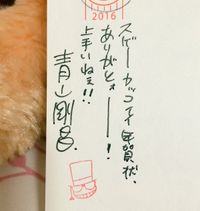 2016
スゲーカッコイイ年賀状、
ありがとォーー!
上手いねぇ!!
青山剛昌.